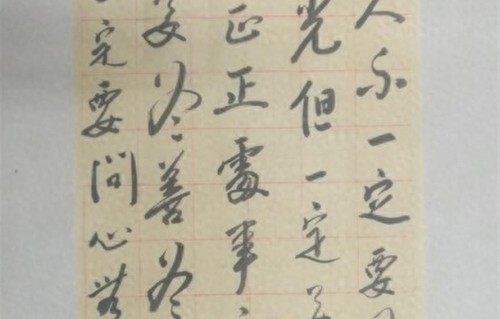 人不一定要
光但一定要
正正處事
要尽善尽
一定要問心無